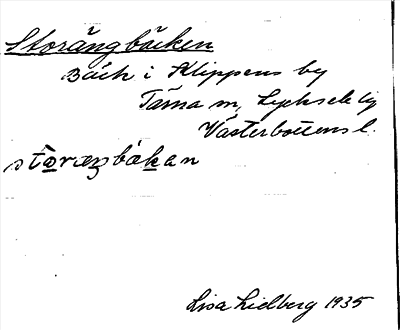 Storängbäcken
Bäck i Klippens by
Tärna sn, Lycksele lg
Västerbottens l.
stọræŋbäkan
Lisa Lidberg 1935